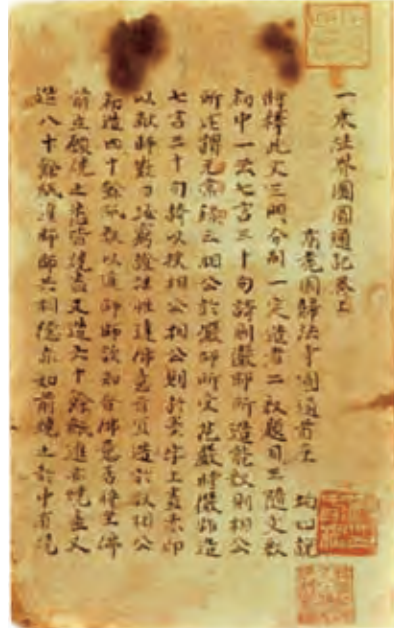 一乘法界圖圓通記卷上
高麗國歸法寺圓通首座 均如說
將釋此文三門分別一定造者二釋題目三隨文釋
初中一云七言三十句詩則儼師所造能釋則相公
所述謂元常錄云相公於儼師所受花嚴時儼師造
七言三十句詩以授相公相公則於黑字上畫赤印
以獻師歎曰汝窮證法性達佛意旨宜造於釋相公
初造四十餘紙釋以進師師 合佛意否後呈佛
前立願燒之悉皆燒盡又造六十餘紙進亦燒盡又
造八十餘紙進師師共相 如前燒之於中有燒